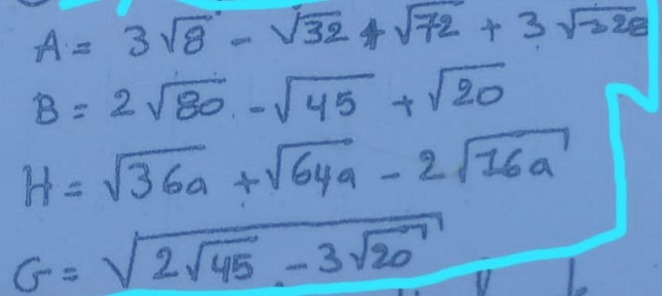 A = 3√8 - √32 + √72 + 3√328
B = 2√80 - √45 + √20
H = √36a + √64a - 2√16a
G = √(2√45 - 3√20)